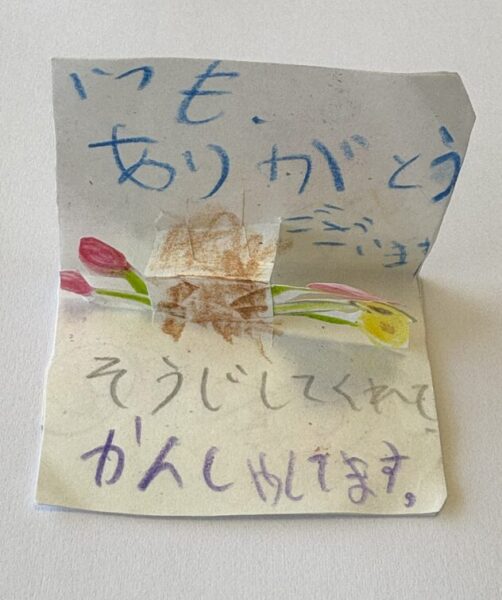 いつも、
ありがとう
ございます
そうじしてくれて
かんしゃしてます。